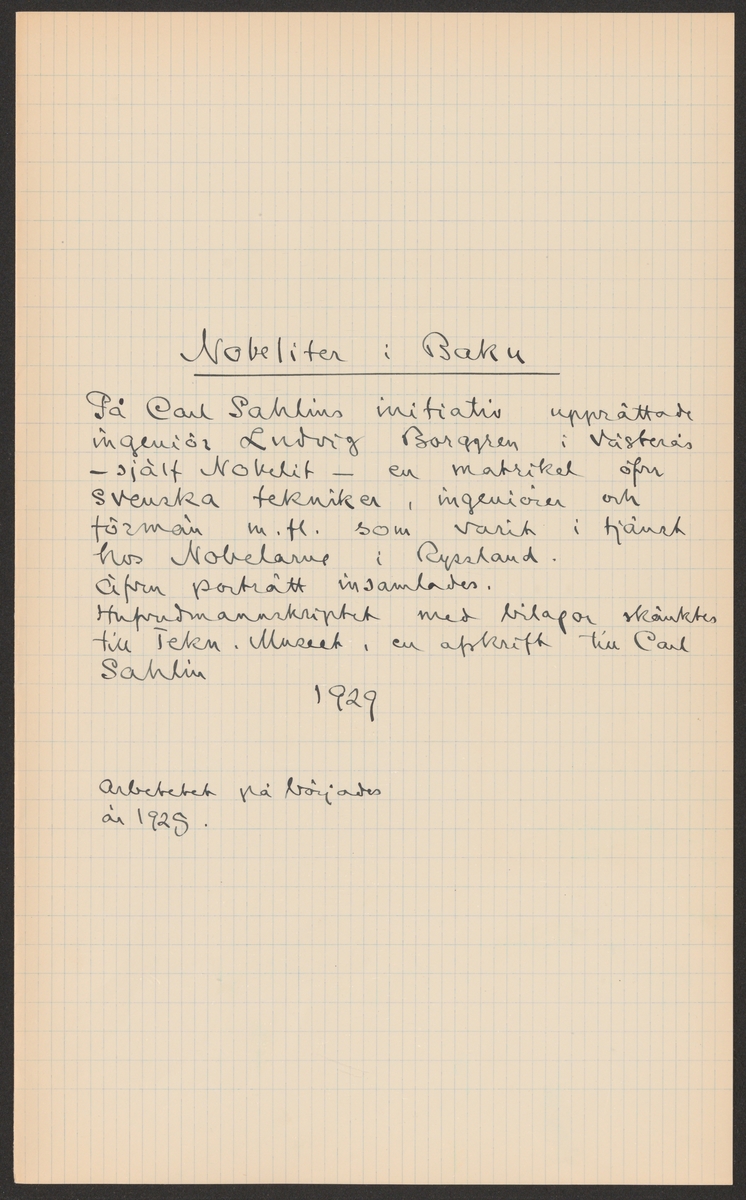 Nobeliter i Baku
På Carl Sahlins initiativ upprättade
ingeniör Ludvig Borggren i Västerås
– själf Nobelit – en matrikel öfver
svenska tekniker, ingeniörer och
förmän m. fl. som varit i tjänst
hos Nobelarne i Ryssland.
Äfven porträtt insamlades.
Hufvudmannskriptet med bilagor skänktes
till Tekn. Museet, en afskrift till Carl
Sahlin
1929
Arbetetet på börjades
år 1925.